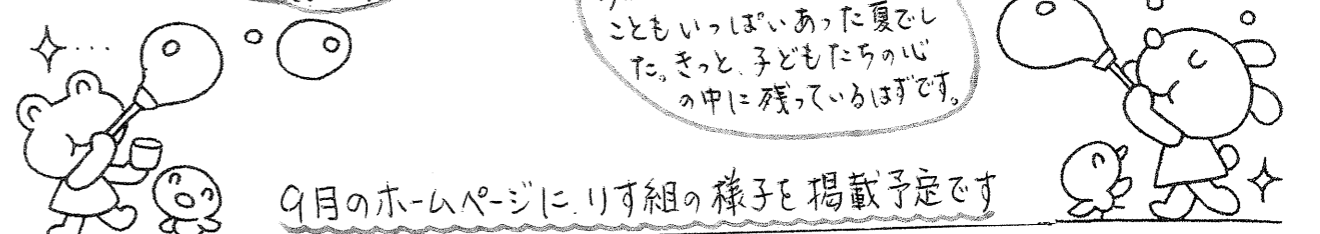 こともいっぱいあった夏でし
た。きっと、子どもたちの心
の中に残っているはずです。
9月のホームページに、りす組の様子を掲載予定です